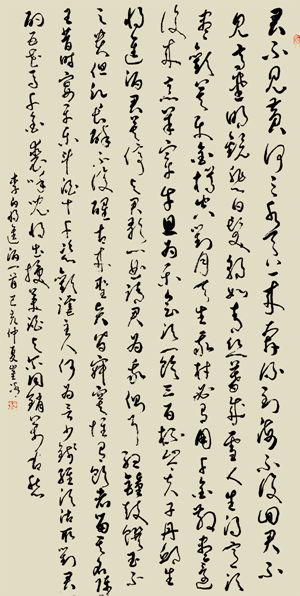 君不見黃河之水天上來奔流到海不復回君不
見高堂明鏡悲白髮朝如青絲暮成雪人生得意須
盡歡莫使金樽空對月天生我材必有用千金散盡還
復來烹羊宰牛且為樂會須一飲三百杯岑夫子丹丘生
將進酒君莫停與君歌一曲請君為我側耳聽鐘鼓饌玉不
足貴但願長醉不復醒古來聖賢皆寂寞惟有飲者留其名陳
王昔時宴平樂斗酒十千恣歡謔主人何為言少錢徑須沽取對君
酌五花馬千金裘呼兒將出換美酒與爾同銷萬古愁
李白將進酒一首己亥仲夏